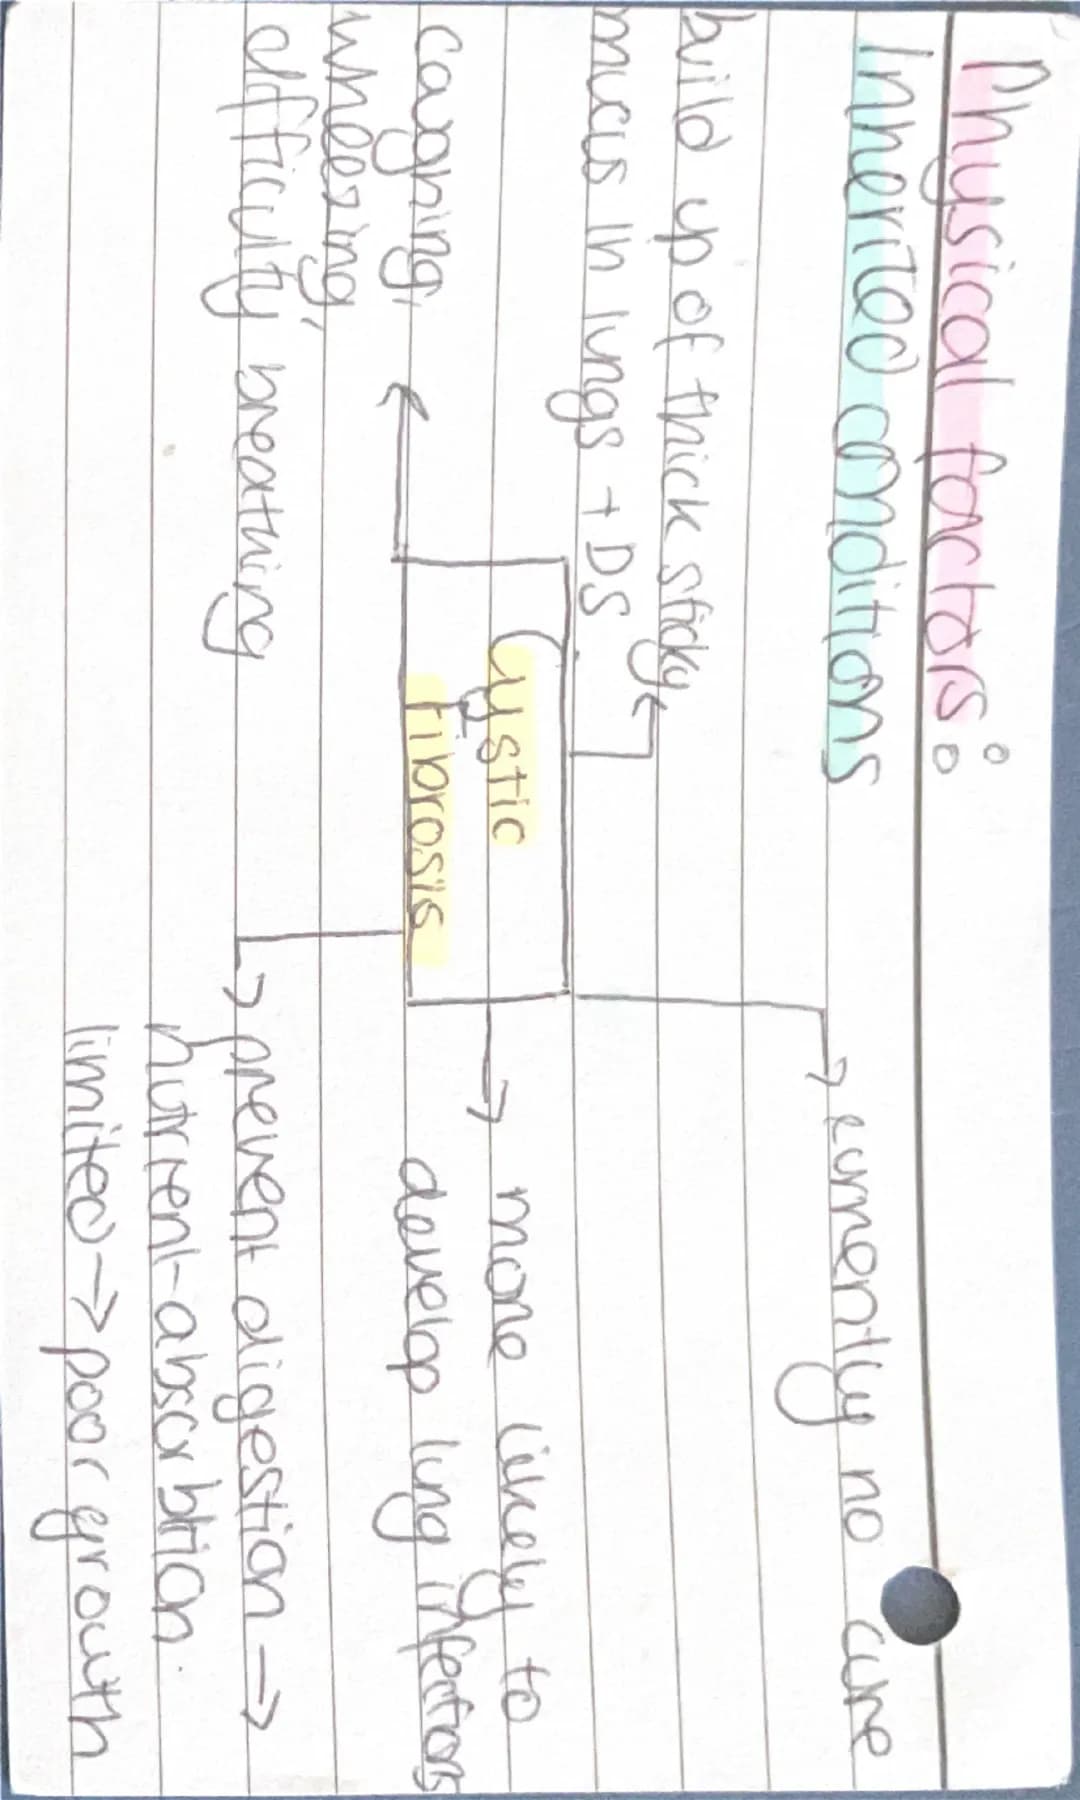 Physical factors:
Inherited conditions
build up of thick sticky
mucus in lungs + DS
currently no cure
Cystic
fibrosis
more likely to
develop lung infections
caughing,
wheezing,
difficulty breathing
prevent digestion →
nutrient absorbtion
limited → poor growth